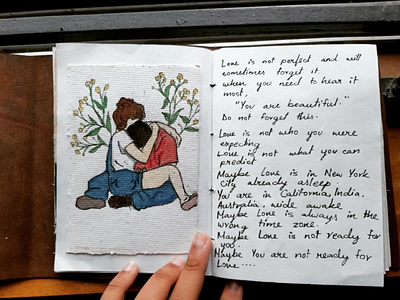 Love is not perfect and will
sometimes forget it
when you need to hear it
most,
"You are beautiful."
Do not forget this.
Love is not who you were
expecting
Love is not what you can
predict
Maybe Love is in New York
City already asleep
You are in California, India.
Australia, wide awake
Maybe Love is always in the
wrong time zone.
Maybe Love is not ready for
you.
Maybe You are not ready for
Love....